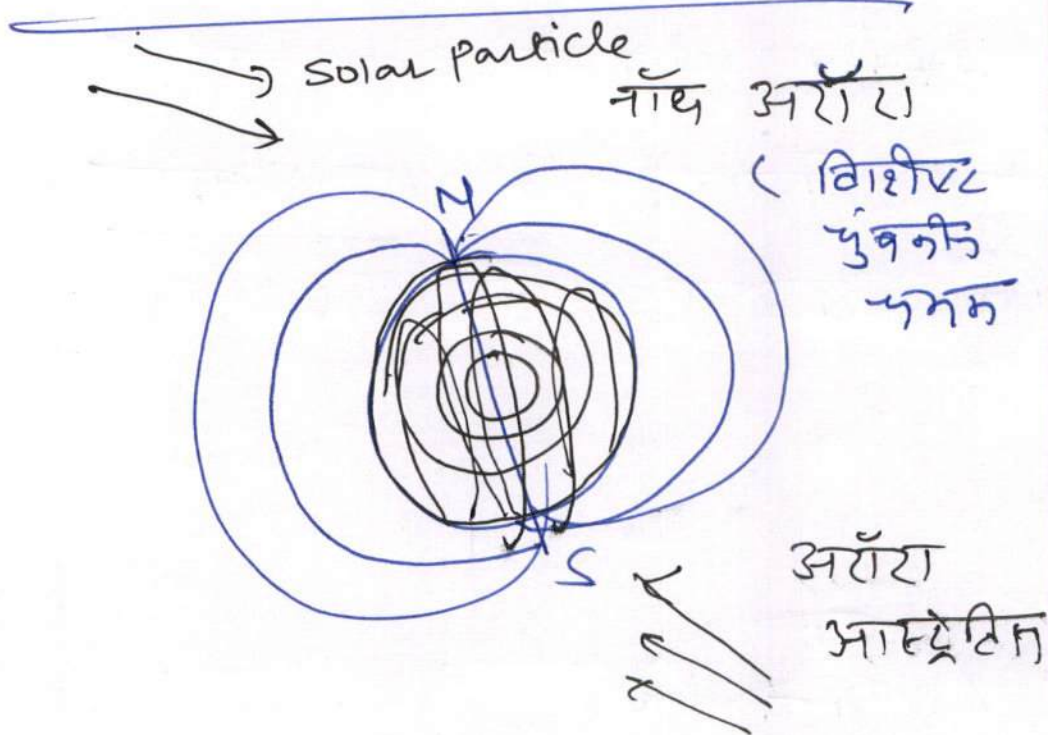 solar particle
नॉथ अरॉरा
( विशीष्ट
चुंबकीय
N
S
अरॉरा
आस्ट्रेलिस